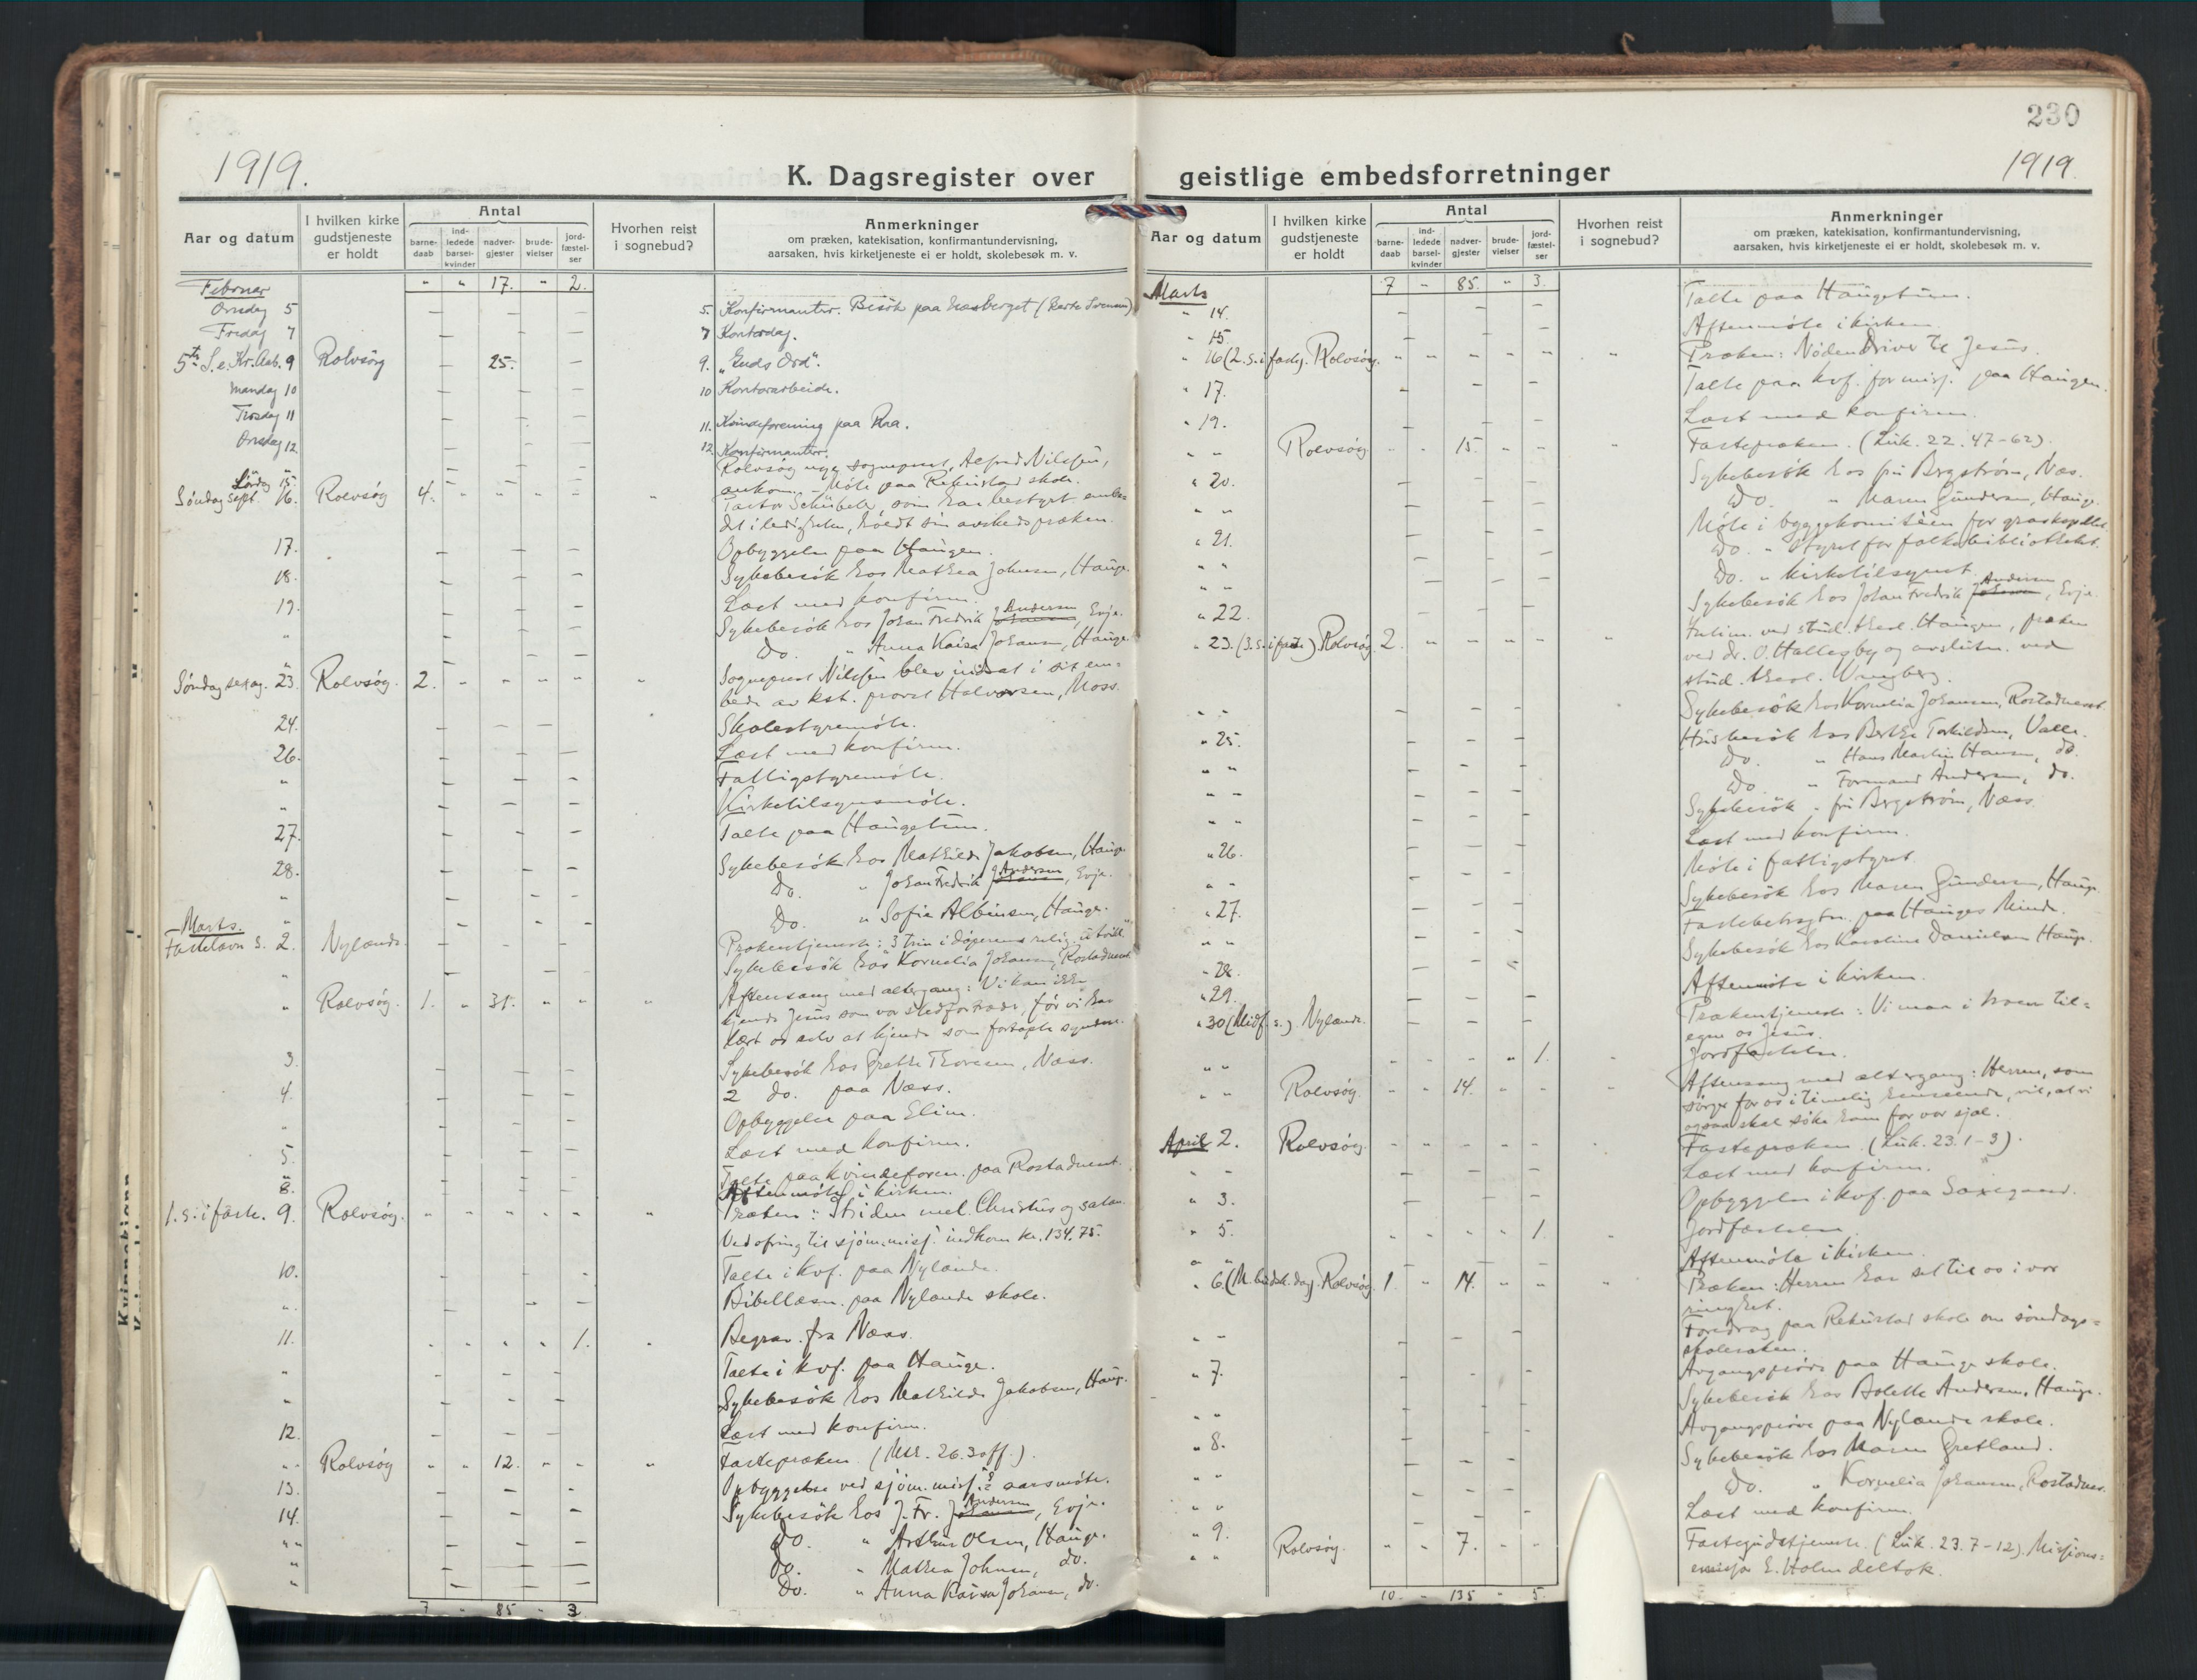 230
1919.
1919.
K. Dagsregister over geistlige embedsforretninger
Aar og datum
I hvilken kirke gudstjeneste er holdt
Antal
barnedaab
indledede barselkvinder
nadvergjester
brudevielser
jordfæstelser
Hvorhen reist i sognebud?
Anmerkninger
om præken, katekisation, konfirmantundervisning,
aarsaken, hvis kirketjeneste ei er holdt, skolebesøk m. v.
Februar " " 17. " 2.
Onsdag 5 — — — 5. Konfirmanter. Besök paa
Fredag 7 — — — 7 Kontordag.
5te S. e. Kr. Aab. 9 Rolvsög — 25. — 9. „Guds Ord".
Mandag 10 — — — 10 Kontorarbeide.
Tirsdag 11 — — — 11. Kvindeforening paa Raa.
Onsdag 12 — — — 12 Konfirmanter.
Lördag 15. Rolvsög nye sogneprest, Alfred Nilssen,
ankom. — Möte paa Rekustad skole.
Söndag sept. 16. Rolvsög 4. " " " " Pastor Schübeler, som har bestyret embe-
det i ledigheten, holdt sin avskedspræken.
17. — — — Opbyggelse paa Haugen.
18. — — — Sykebesök hos Mathea Johnsen, Hauge.
19. — — — Læst med konfirm.
Sykebesök hos Johan Fredrik Andersen, Evje.
" — — — Do. " Anna Kaisa Johansen, Hauge.
Söndag sexag. 23. Rolvsög. 2. " " " " Sogneprest Nilssen blev indsat i sit em-
bede av kst. provst Halvorsen, Moss.
24. — — — Skolestyremöte.
26. — — — Læst med konfirm.
" — — — Fattigstyremöte.
" — — — Kirketilsynsmöte.
27. — — — Talte paa Haugetun.
28. — — — Sykebesök hos Mathilde Jakobsen, Hauge.
" — — — Do. " Johan Fredrik Andersen, Evje.
" — — — Do. " Sofie Albinsen, Hauge.
Marts.
Fastelavn s. 2. Nylænde. — — — Prækentjeneste: 3 trin i döperens relig. utvikl.
" — — — Sykebesök hos Kornelia Johansen, Rostadneset.
" Rolvsög. 1. " 31. " " Aftensang med altergang: Vi kan ikke
kjende Jesus som vor stedfortræder, för vi har
lært os selv at kjende som fortapte syndere.
3. — — — Sykebesök hos Grethe Thoresen, Næss.
4. — — — 2 do. paa Næss.
" — — — Opbyggelse paa Elim.
5. — — — Læst med konfirm.
" — — — Talte paa kvindeforen. paa Rostadneset.
8. — — — Aftenmöte i kirken.
1. s. i faste. 9. Rolvsög. " " " " " Præken: Striden mel. Christus og satan.
Ved ofring til sjöm.misj. indkom kr. 134.75.
10. — — — Talte i kvf. paa Nylænde.
" — — — Bibellæsn. paa Nylænde skole.
11. " " " " 1. Begrav. fra Næss.
" — — — Talte i kvf. paa Hauge.
" — — — Sykebesök hos Mathilde Jakobsen, Hauge.
12. — — — Læst med konfirm.
" Rolvsög " " 12. " " Fastepræken (Mtt. 26.30 ff.)
13. — — — Opbyggelse ved sjöm.misj.s aarsmöte.
14. — — — Sykebesök hos J. Fr. Andersen, Evje.
" — — — Do. " Arthur Olsen, Hauge.
" — — — Do. " Mathea Johnsen, do.
" — — — Do. " Anna Kaisa Johansen, do.
7 " 85 " 3
Aar og datum
I hvilken kirke gudstjeneste er holdt
Antal
barnedaab
indledede barselkvinder
nadvergjester
brudevielser
jordfæstelser
Hvorhen reist i sognebud?
Anmerkninger
om præken, katekisation, konfirmantundervisning,
aarsaken, hvis kirketjeneste ei er holdt, skolebesøk m. v.
Marts 7 " 85. " 3.
" 14. — — — Talte paa Haugetun.
" 15. — — — Aftenmöte i kirken.
" 16 (2. s. i faste). Rolvsög. " " " " " Præken: Nöden driver til Jesus.
" 17. — — — Talte paa kvf. for misj. paa Haugen.
" 19. — — — Læst med konfirm.
" " Rolvsög " " 15. " " Fastepræken. (Luk. 22. 47-62).
" 20. — — — Sykebesök hos fru Bergström, Næs.
" " — — — Do. " Maren Gundersen, Hauge.
" 21. — — — Möte i byggekomitéen for gravkapellet.
" " — — — Do. " styret for folkebiblioteket.
" " — — — Do. " kirketilsynet.
" 22. — — — Sykebesök hos Johan Fredrik Andersen, Evje.
" 23. (3. s. i faste) Rolvsög. 2. " " " " ved stud. theol. Haugen, præken
ved dr. O. Hallesby og avslutn. ved
stud. theol.
" " — — — Sykebesök hos Kornelia Johansen, Rostadneset.
" 25. — — — Husbesök hos Berthe Torkildsen, Valle.
" " — — — Do. " Hans Martin Hansen, do.
" " — — — Do. " Formand Andersen, do.
" " — — — Sykebesök " fru Bergström, Næss.
" 26. — — — Læst med konfirm.
" " — — — Möte i fattigstyret.
" 27. — — — Sykebesök hos Maren Gundersen, Hauge.
Fastebetragtn. paa Hauges Minde.
" " — — — Sykebesök hos Karoline Danielsen Hauge.
" 28. — — —
" 29. — — — Aftenmöte i kirken.
" 30 (Midf. s.). Nylænde. — — — Prækentjeneste: Vi maa i troen til-
egne os Jesus.
" " " " " " 1. Jordfæstelse.
" " Rolvsög. " " 14. " " Aftensang med altergang: Herren, som
sörger for os i timelig henseende, vil, at vi
ogsaa skal söke ham for vor sjæl.
April 2. Rolvsög. " " " " " Fastepræken (Luk. 23. 1-3).
" " — — — Læst med konfirm.
" 3. — — — Opbyggelse i kvf. paa Saxegaard.
" 5. " " " " 1. Jordfæstelse.
" " — — — Aftenmöte i kirken.
" 6. (M. budsk. dag). Rolvsög. 1. " 14. " " Præken: Herren har set til os i vor
ringhet.
" " — — — Foredrag paa Rekustad skole om söndags-
skolesaken.
" 7. — — — Avgangspröve paa Hauge skole.
Sykebesök hos Bolette Andersen, Hauge.
" " — — — Avgangspröve paa Nylænde skole.
" 8. — — — Sykebesök hos Maren Gretland.
" " — — — Do. " Kornelia Johansen, Rostadnes.
" " — — — Læst med konfirm.
" 9. Rolvsög. " " 7. " " Fastegudstjeneste. (Luk. 23. 7-12). Missions-
emissær E. Holm deltok.
10. " 135 " 5.